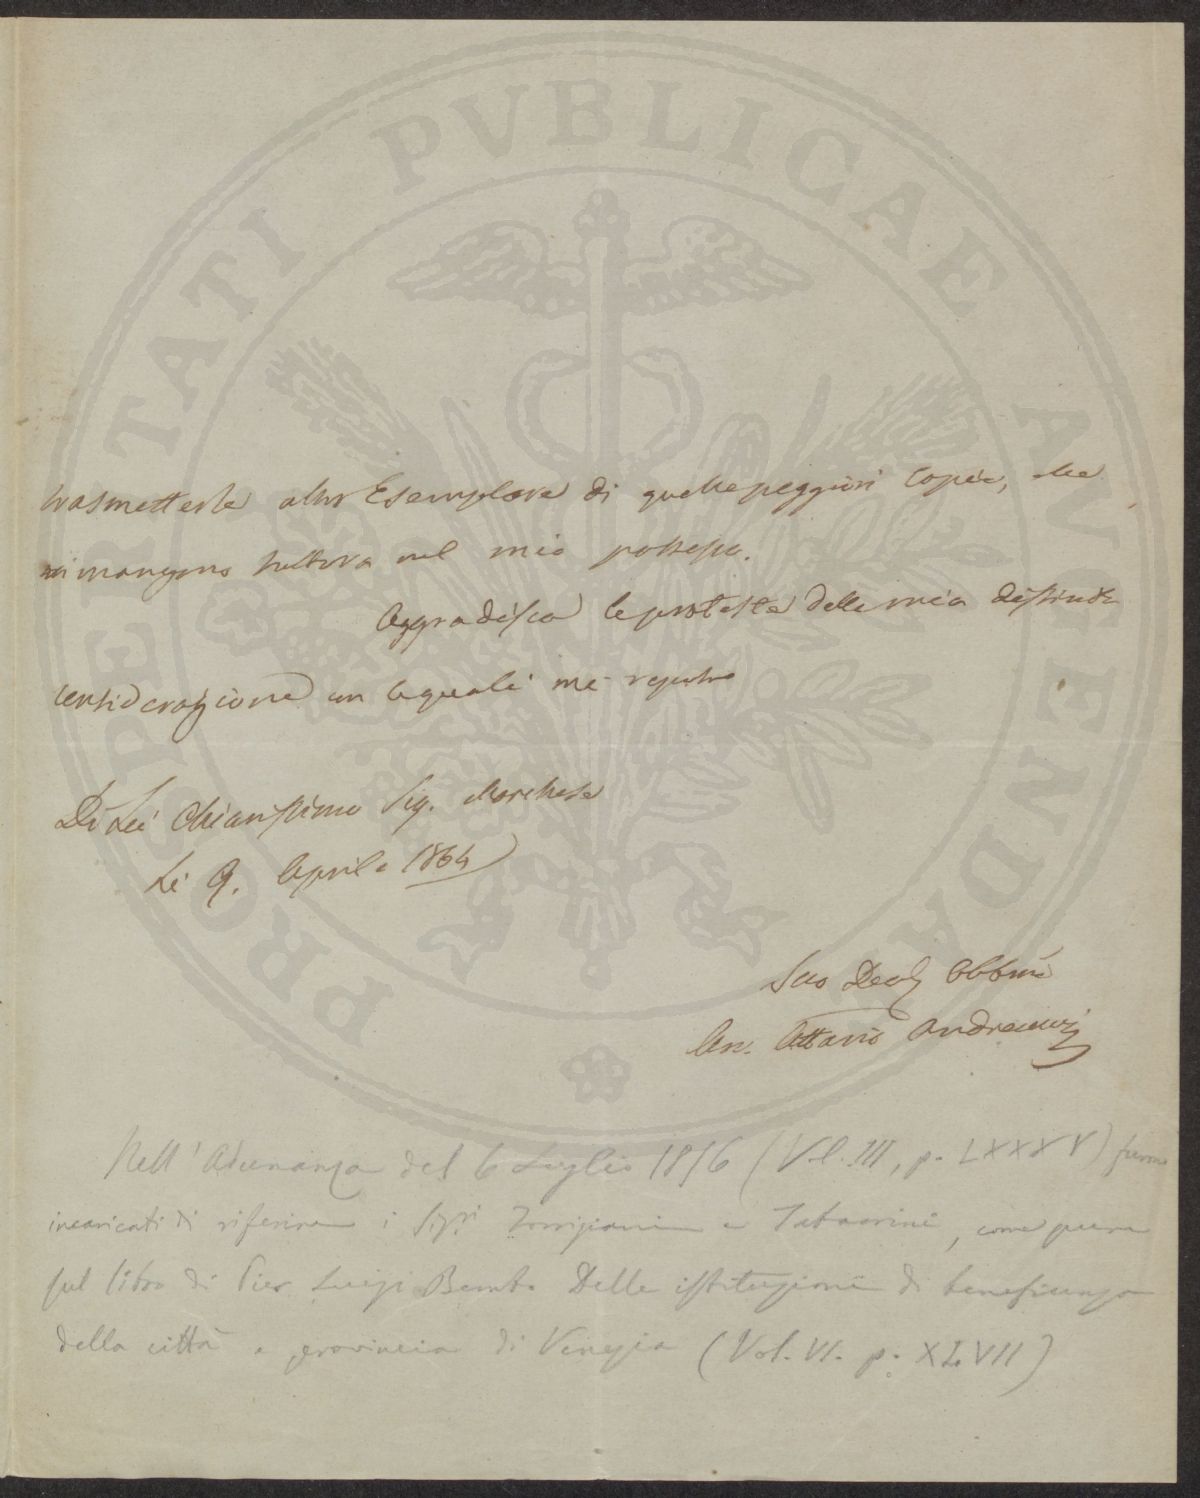 PROSPERITATI PVBLICAE AVGENDAE
trasmetterle altro Esemplare di quelle peggiori Copie, che
rimangono tuttora nel mio possesso.
Aggradisca le proteste della mia distinta
considerazione con le quali me reputo
Di Lei Chiarissimo Sig. Marchese
Li 9. Aprile 1864
Suo Dev Obbmo
Ottavio Andreucci
Nell'Adunanza del 6 Luglio 1856 (Vol. III, p. LXXXV) furono
incaricati di riferire i Sigri Torrigiani e Tabarrini, come pure
sul libro di Pier Luigi Bembo Delle istituzioni di beneficenza
della città e provincia di Venezia (Vol. VI. p. XLVII)